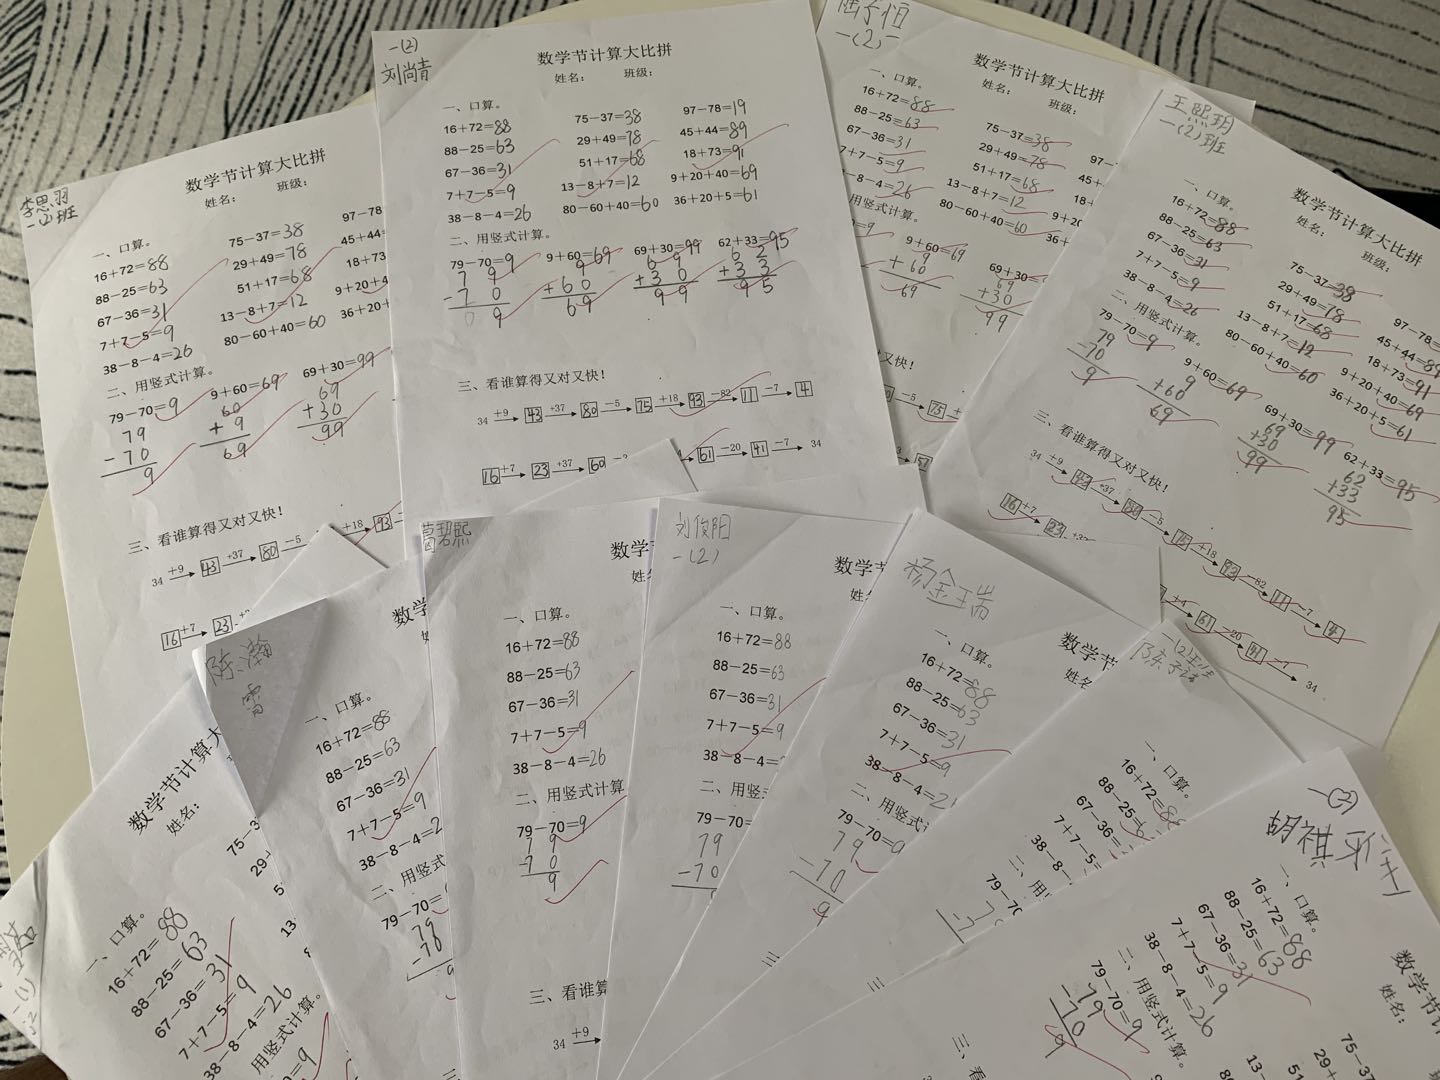 李思羽
一(2)班
数学节计算大比拼
姓名：
班级：
一、口算。
16+72=88
88-25=63
67-36=31
7+7-5=9
38-8-4=26
75-37=38
29+49=78
51+17=68
13-8+7=12
80-60+40=60
97-78
45+44=
18+73
9+20+4
36+20+
二、用竖式计算。
79-70=9
79
-70
9
9+60=69
60
+9
69
69+30=99
69
+30
99
三、看谁算得又对又快！
34 +9 43 +37 80 -5
+18 93
16 +7 23
一(2)
刘尚青
数学节计算大比拼
姓名： 班级：
一、口算。
16+72=88 75-37=38 97-78=19
88-25=63 29+49=78 45+44=89
67-36=31 51+17=68 18+73=91
7+7-5=9 13-8+7=12 9+20+40=69
38-8-4=26 80-60+40=60 36+20+5=61
二、用竖式计算。
79-70=9 9+60=69 69+30=99 62+33=95
79 9 69 62
-70 +60 +30 +33
09 69 99 95
三、看谁算得又对又快！
34 +9 43 +37 80 -5 75 +18 93 -82 11 -7 4
16 +7 23 +37 60 61 -20 41 -7 34
陆予恒
一(2)
数学节计算大比拼
姓名：
班级：
一、口算。
16+72=88
88-25=63
67-36=31
7+7-5=9
-8-4=26
75-37=38
29+49=78
51+17=68
13-8+7=12
80-60+40=60
97-
45+
9+20
36+
用竖式计算。
=9
9+60=69
9
+60
69
69+30
69
+30
99
-5 75
王熙玥
一(2)班
数学节计算大比拼
姓名：
班级：
一、口算。
16+72=88
88-25=63
67-36=31
7+7-5=9
38-8-4=26
75-37=38
29+49=78
51+17=68
13-8+7=12
80-60+40=60
97-78=
45+44=89
18+73=91
9+20+40=69
36+20+5=61
二、用竖式计算。
79-70=9
79
-70
9
9+60=69
9
+60
69
69+30=99
69
+30
99
62+33=95
62
+33
95
三、看谁算得又对又快！
34 +9 +37 80 -5 75 +18 93 -82 11 -7 4
16 +7 23
+4 61 -20 41 -7 34
一(1)
数学节计算大
姓名：
一、口算。
16+72=88
88-25=63
67-36=31
7+7-5=9
38-8-4=26
75-3
29+
用竖式计算。
=9
陈瀚
雷
数学
一、口算。
16+72=88
88-25=63
67-36=31
7+7-5=9
38-8-4=2
二、用竖式
79-70=
葛碧熙
数学
姓
一、口算。
16+72=88
88-25=63
67-36=31
7+7-5=9
38-8-4=26
二、用竖式计算
79-70=9
79
-70
9
三、看谁算
34 +9
刘俊阳
一(2)
数学节
姓
一、口算。
16+72=88
88-25=63
67-36=31
7+7-5=9
38-8-4=2
二、用竖式
79-70=
79
-70
三
杨金瑞
数学节
姓名
一、口算。
16+72=88
88-25=63
67-36=31
7+7-5=9
38-8-4=2
二、用竖式计
79-70=
79
-70
9
三
一、口算。
16+72=88
88-25=6
67-36=
7+7-5=
38-8-4
二、用
79-70
三
一(2)
胡祺
数学节计
姓名：
一、口算。
16+72=88
88-25=63
67-36=31
7+7-5=9
38-8-4=26
二、用竖式计算。
79-70=9
79
-70
9
75-37
29+
三、看